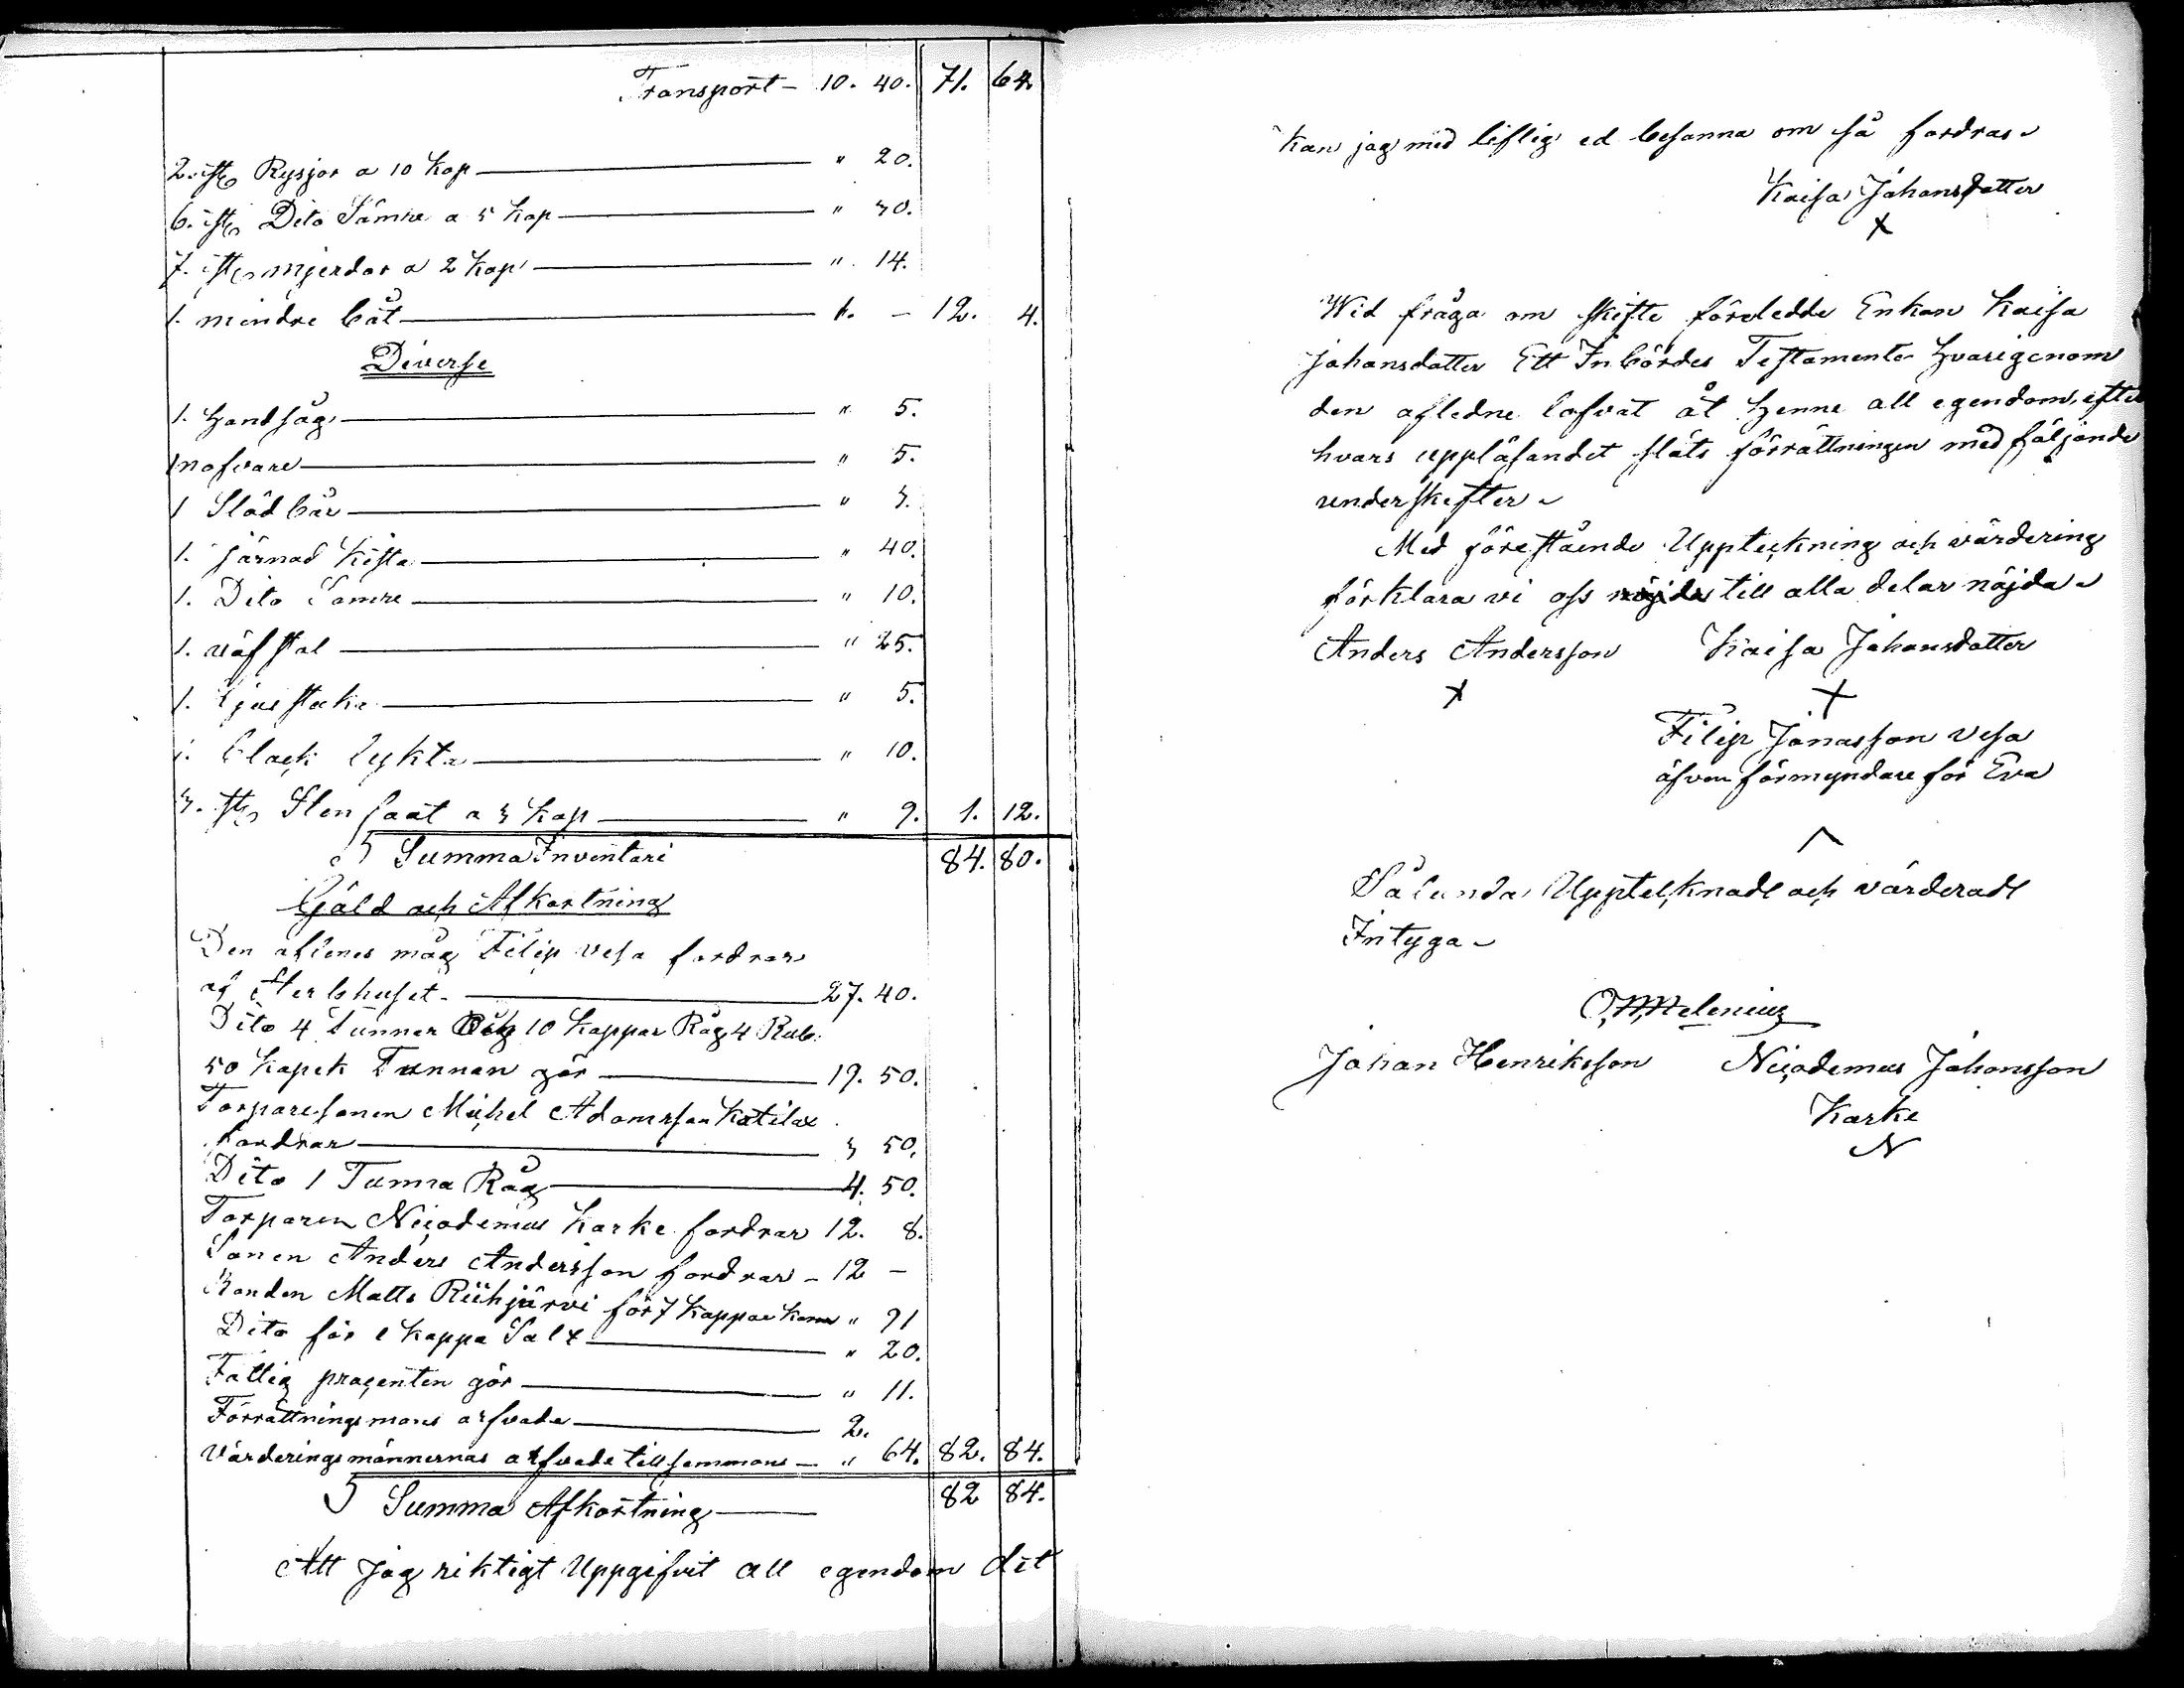 Transport - 10. 40. 71. 64.
2. st Rysjor a 10 Kop " 20.
6. st Dito Sämre a 5 Kop " 30.
7. st mjerdor a 2 Kop " 14.
1. mindre båt 1. - 12. 4.
Diverse
1. Handsåg " 5.
1 nafvare " 5.
1 Städ bår " 3.
1. järnad Kista " 40.
1. Dito Samre " 10.
1. väfstol " 25.
1. Ljusstake " 5.
1. black lykta " 10.
3. st Stenfaat a 3 Kop " 9. 1. 12.
Summa Inventari 84. 80.
Gäld och Afkortning
Den aflenes måg Filip Vesa fordrar
af Sterbhuset. 27. 40.
Dito 4 Tunnor 10 Kappar Råg 4 Rub.
50 Kopek Tunnan gör 19. 50.
Torparesonen Michel Adamsson Katilax
fordrar 3 50.
Dito 1 Tunna Råg 4. 50.
Torparen Nicodemus Karke fordrar 12. 8.
Sonen Anders Andersson fordrar - 12 -
Bonden Matts Riihjärvi för 7 Kappar Korn " 91
Dito för 1 Kappa Salt " 20.
Fattig procenten gör " 11.
Förrättningsmans arfvode 2.
Värderingsmännernas arfvode tillsammans - " 64. 82. 84.
Summa Afkortning 82 84.
Att Jag riktigt Uppgifvit all egendom det
Kan jag med liflig ed besanna om så fordras
Kaisa Johansdotter
X
Wid fråga om skifte föreledde Enkan Kaisa
Johansdotter Ett Inbördes Testamente hvarigenom
den afledne lofvat åt henne all egendom, efter
hvars uppläsandet släts förrättningen med följande
underskefter
Med föreståendo Uppteckning och värdering
förklara vi oss nöjda till alla delar nöjda
Anders Andersson Kaisa Johansdotter
X X
Filip Jonasson Vesa
äfven förmyndare för Eva
Sålunda Upptecknadt och värderadt
Intyga
Johan Henriksson Nicodemus Johansson
Karke
N